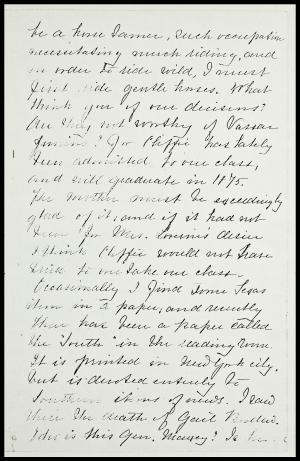 be a horse tamer, such occupation
necessitating much riding, and
in order to ride wild, I must
first ride gentle horses. What
think you of our decisions?
Are they not worthy of Vassar
Juniors? For Cliffie has lately
been admitted to our class,
and will graduate in 1875.
The mother must be exceedingly
glad of it; and if it had not
been for Mrs. desire
I think Cliffie would not have
tried to overtake our class.
Occasionally I find some Texas
item in a paper, and recently
there has been a paper called
the South in the reading room.
It is printed in New York city,
but is devoted entirely to
Southern items of news. I saw
there the death of Gail
Who is this Gen. ? Is